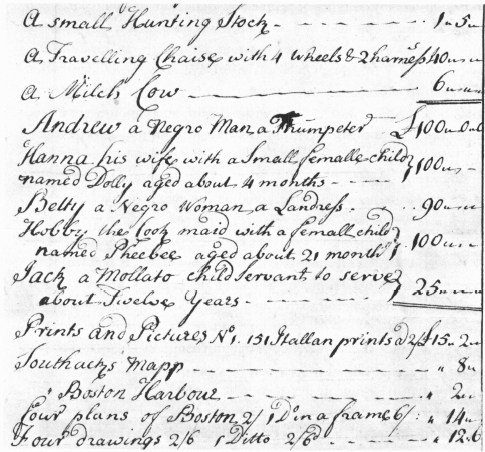 A small Hunting Stock - - - - - - - 1 " 5 "
A Travelling Chaise with 4 Wheels & 2 harness 40 " " "
A Milch Cow - 6 " " "
Andrew a Negro Man a Trumpeter £100 " 0 " 0
Hanna his wife with a Small femalle child
named Dolly aged about 4 months - - - - 100 " " -
Betty a Negro Woman a Landress - - 90 " " "
Hobby the Cook maid with a femall child
named Pheebee aged about 21 months 100 " " -
Jack a Mollato child servant to serve
about Twelve Years - - - - - - - 25 " " "
Prints and Pictures No. 1. 151 Itallan prints a 2/ £15 " 2 "
Southacks Mapp - - - - - - - " 8 "
" Boston Harbour - - - - - - - " 2 "
Four plans of Boston 2/ 1 Do in a frame 6/: " 14 "
Four drawings 2/6 1 Ditto 2/6d - - " 12 " 6